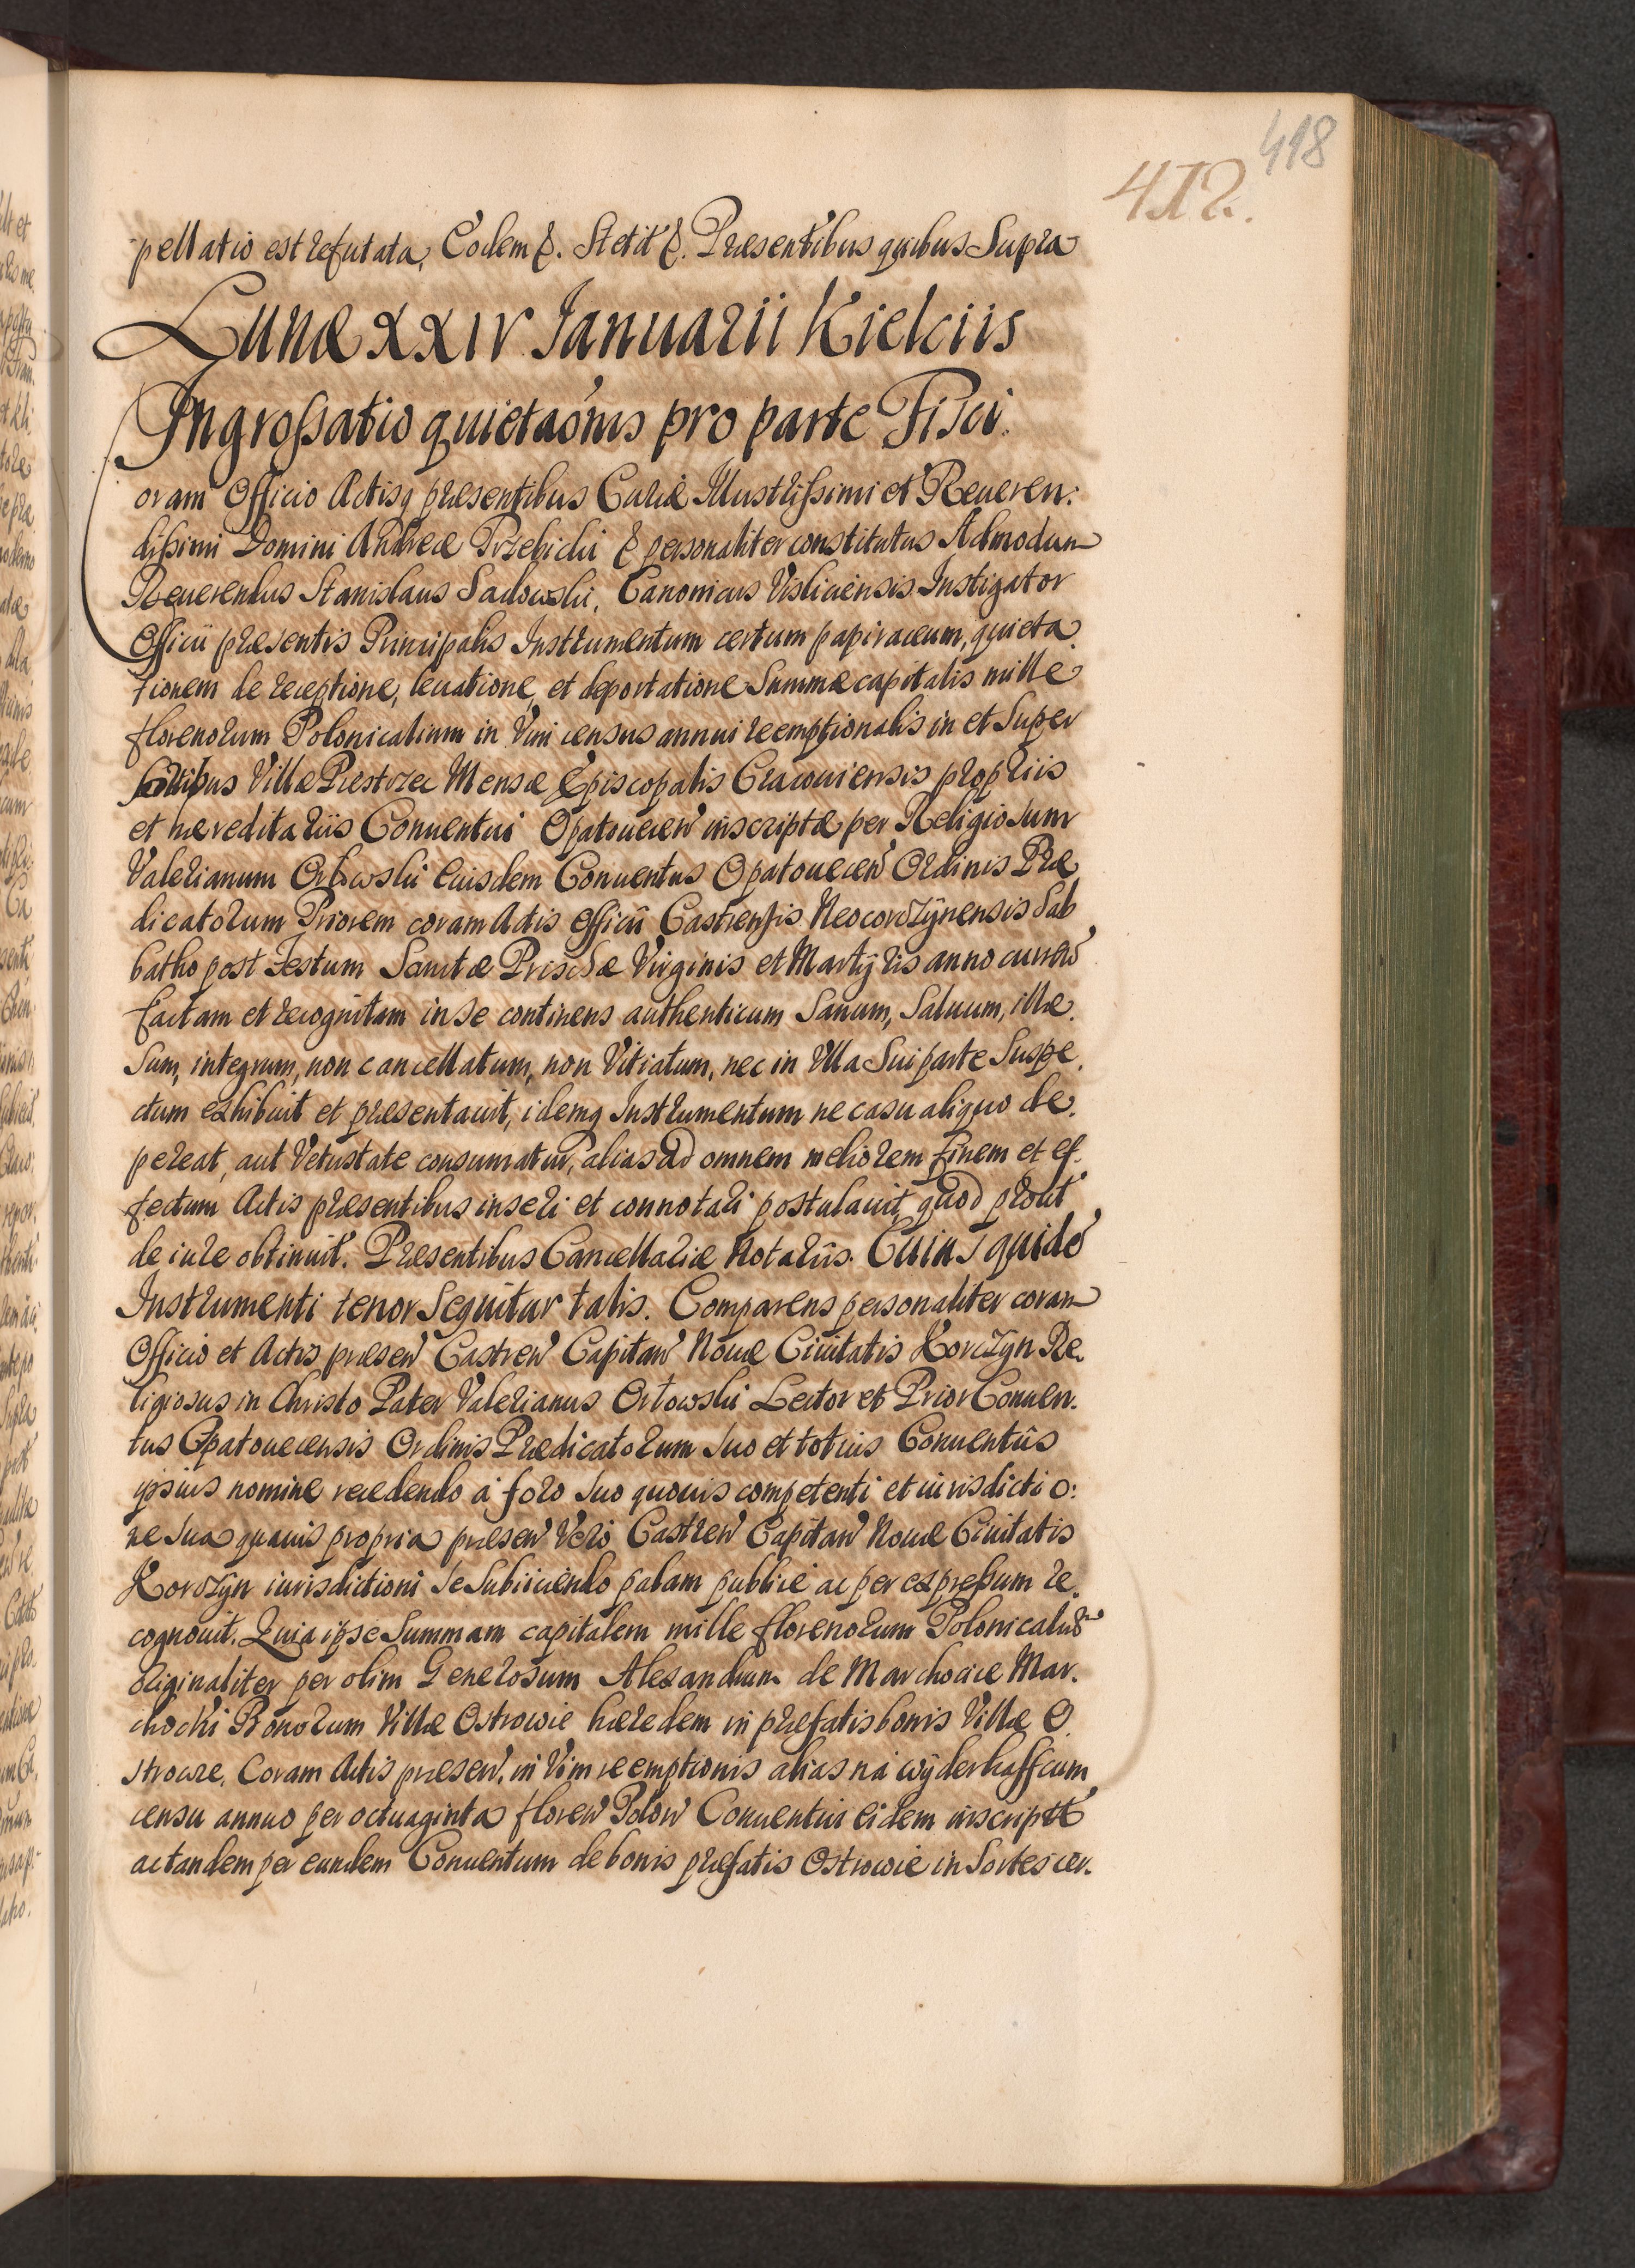 418
412.
pellatio est refutata, Eodem &. Stetit &. Præsentibus quibus Supra
Lunæ XXIV Ianuarii Kielciis
Ingrossatio quietaonis pro parte Fisci.
oram Officio Actisq præsentibus Curiæ Illustrissimi et Reueren:
dissimi Domini Andreæ Trzebicki & personaliter constitutus Admodum
Reuerendus Stanislaus Sadowski, Canonicus Visliciensis Instigator
Officii præsentis Principalis Instrumentum certum papiraceum, quieta
tionem de receptione, leuatione, et deportatione Summæ capitalis mille
florenorum Polonicalium in Vim census annui reemptionalis in et Super
Sortibus Villæ Mensæ Episcopalis Cracouiensis propriis
et hæreditariis Conuentui Opatouecen inscriptæ per Religiosum
Valerianum Orłowski eiusdem Conuentus Opatouecen Ordinis Præ
dicatorum Priorem coram Actis Officii Castrensis Neocorczÿnensis Sab
batho post Festum Sanctæ Priscæ Virginis et Martÿris anno curren
factam et recognitam in se continens authenticum Sanum, Saluum, illæ
sum, integrum, non cancellatum, non Vitiatum, nec in Vlla Sui parte Suspe
ctum exhibuit et præsentauit, idemq Instrumentum ne casu aliquo de
pereat, aut Vetustate consumatur, alias ad omnem meliorem finem et ef
fectum Actis præsentibus inseri et connotari postulauit, quod prout
de iure obtinuit. Præsentibus Cancellariæ Notariis. Cuius quidē
Instrumenti tenor Sequitur talis. Comparens personaliter coram
Officio et Actis præsen Castren Capitan Nouæ Ciuitatis Korczyn Re
ligiosus in Christo Pater Valerianus Orłowski Lector et Prior Conuen
tus Opatouecensis Ordinis Prædicatorum suo et totius Conuentûs
ipsius nomine recedendo á foro suo quouis competenti et iurisdictio:
ne sua quauis propria præsen Verò Castren Capitan Nouæ Ciuitatis
Korczÿn iurisdictioni se Subiiciendo palam publicè ac per expressum re
cognouit. Quia ipse Summam capitalem mille florenorum Polonicaliu
originaliter per olim Generosum Alexandrum de Marchocice Mar
chocki Bonorum Villæ Ostrowie hæredem in præfatis bonis Villæ O
strowie, Coram Actis præsen. in Vim reemptionis alias na wÿderkaff cum
censu annuo per octuaginta floren Polon Conuentui eidem inscriptā
ac tandem per eundem Conuentum de bonis præfatis Ostrowie in Sortes cer